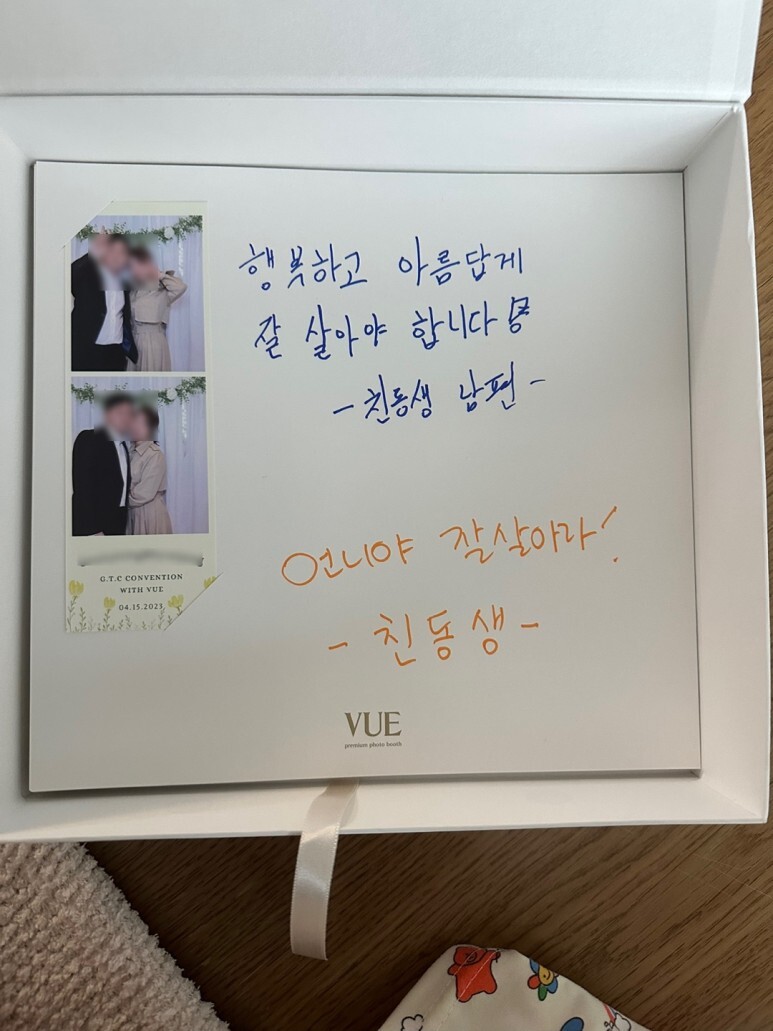 행복하고 아름답게
잘 살아야 합니다
-친동생 남편-
언니야 잘살아라!
-친동생-
G.T.C CONVENTION
WITH VUE
04.15.2023
VUE
premium photo booth